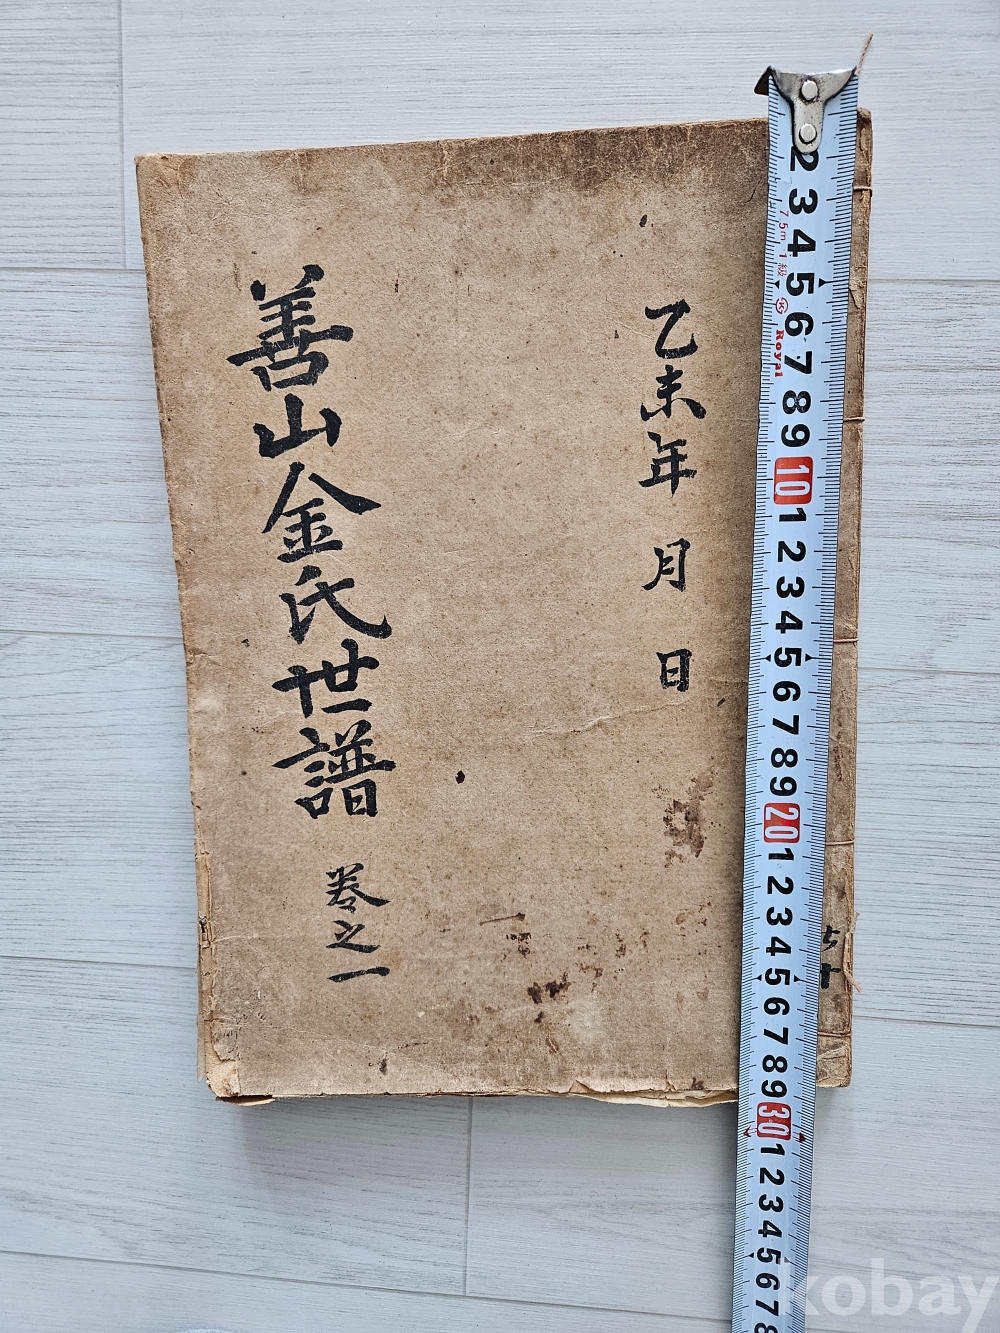 乙未年 月 日
善山金氏世譜 卷之一
2 3 4 5 6 7 8 9 10 1 2 3 4 5 6 7 8 9 20 1 2 3 4 5 6 7 8 9 30 1 2 3 4 5 6 7 8
7.5m 1級 Royal
kobay